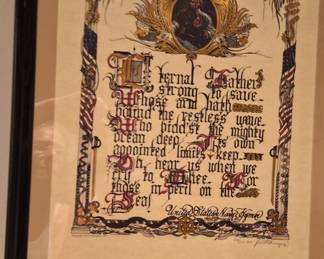 Eternal Father
strong to save
Whose arm hath
bound the restless wave
Who bidd'st the mighty
ocean deep Its own
appointed limits keep
Oh hear us when we
cry to Thee For
those in peril on the
Sea
United States Navy Hymn